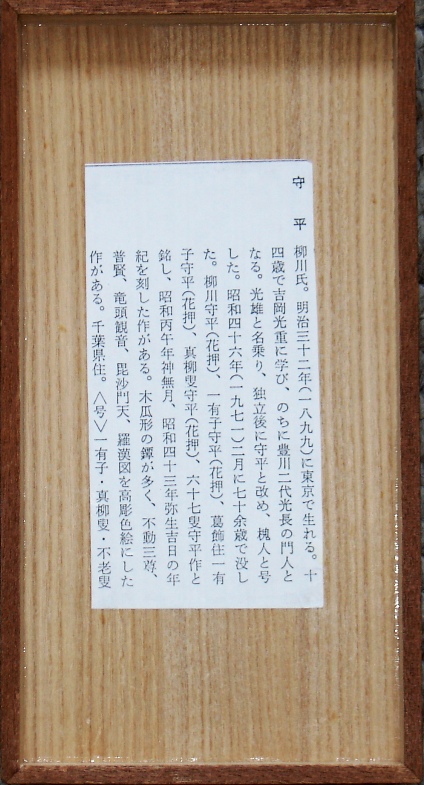 守平
柳川氏。明治三十二年(一八九九)に東京で生れる。十
四歳で吉岡光重に学び、のちに豊川二代光長の門人と
なる。光雄と名乗り、独立後に守平と改め、槐人と号
した。昭和四十六年(一九七一)二月に七十余歳で没し
た。柳川守平(花押)、一有子守平(花押)、葛飾住一有
子守平(花押)、真柳叟守平(花押)、六十七叟守平作と
銘し、昭和丙午年神無月、昭和四十三年弥生吉日の年
紀を刻した作がある。木瓜形の鐔が多く、不動三尊、
普賢、竜頭観音、毘沙門天、羅漢図を高彫色絵にした
作がある。千葉県住。〈号〉一有子・真柳叟・不老叟